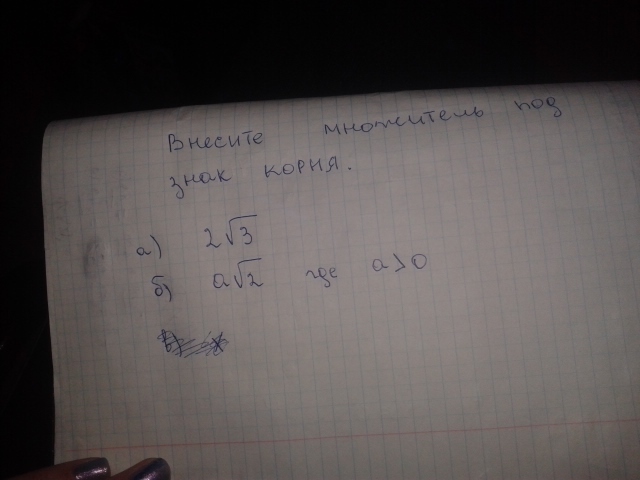 Внесите множитель под
знак корня.
а) 2√3
б) a√2 где a>0